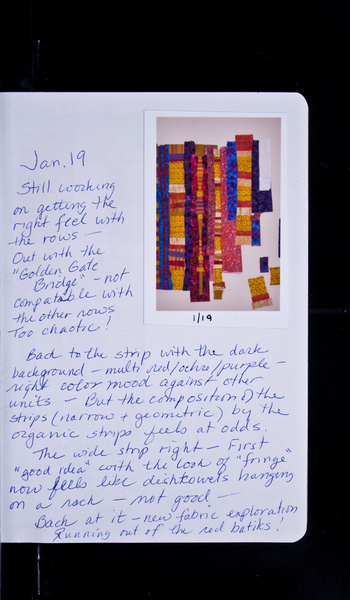 Jan. 19
Still working
on getting the
right feel with
the rows —
Out with the
"Golden Gate
Bridge" - not
compatable with
the other rows
Too chaotic!
1/19
Back to the strip with the dark
background - multi red/ochre/purple -
right color mood against other
units - But the composition of the
strips (narrow + geometric) by the
organic strips feels at odds.
The wide strip right - First
"good idea" with the look of "fringe"
now feels like dishtowels hanging
on a rack - not good —
Back at it - new fabric exploration
Running out of the red batiks!